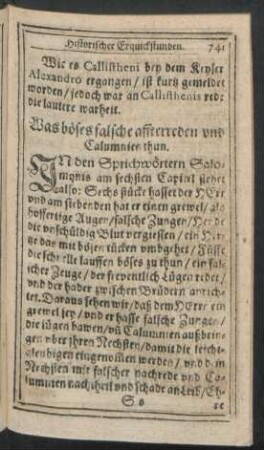 Historischer Erquickstunden. 741
Wie es Callistheni bey dem Keyser
Alexandro ergangen / ist kurtz gemeldet
worden / jedoch war an Callisthenis rede
die lautere warheit.
Was böses falsche affterreden vnd
Calumnien thun.
IN den Sprichwörtern Salo-
monis am sechsten Capitel stehet
also: Sechs stück hasset der HErr
vnd am siebenden hat er einen grewel / als
hoffertige Augen / falsche Zungen / Hende
die vnschüldig Blut vergiessen / ein Hertz
das mit bösen tücken vmbgehet / Füsse
die schnelle lauffen böses zu thun / ein fal-
scher Zeuge / der freventlich Lügen redet /
vnd der hader zwischen Brüdern anrich-
tet. Daraus sehen wir / daß dem HErrn ein
grewel sey / vnd er hasse falsche Zungen /
die lügen bawen / vñ Calumnien außbrin-
gen vber jhren Nechsten / damit die leicht-
gleubigen eingenommen werden / vnd dem
Nechsten mit falscher nachrede vnd Ca-
lumnien nachtheil vnd schade an Leib / Eh-